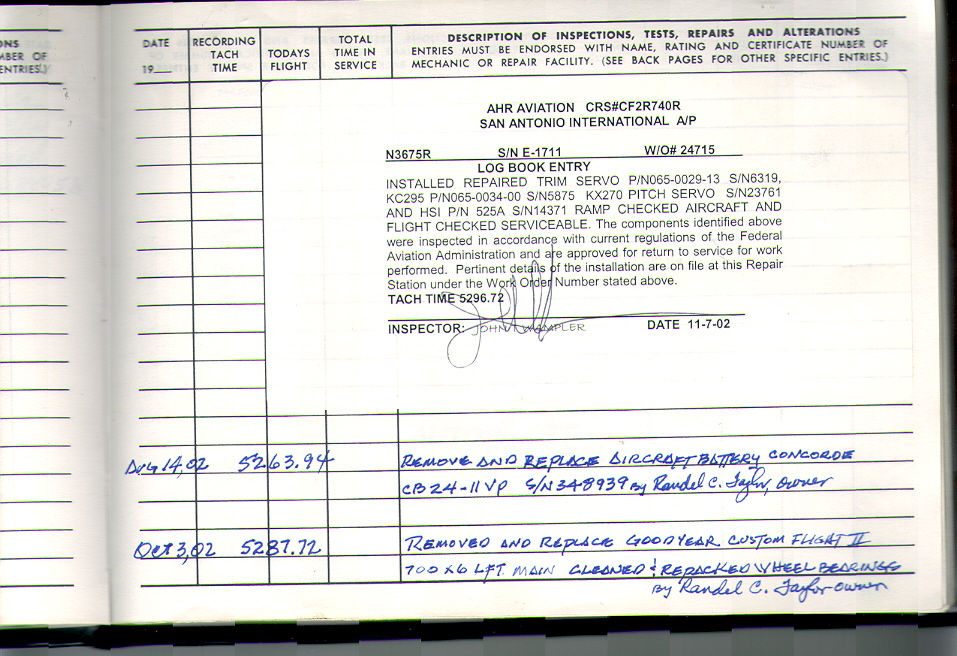 ONS
MBER OF
ENTRIES.)
DATE
19
RECORDING
TACH
TIME
TODAYS
FLIGHT
TOTAL
TIME IN
SERVICE
DESCRIPTION OF INSPECTIONS, TESTS, REPAIRS AND ALTERATIONS
ENTRIES MUST BE ENDORSED WITH NAME, RATING AND CERTIFICATE NUMBER OF
MECHANIC OR REPAIR FACILITY. (SEE BACK PAGES FOR OTHER SPECIFIC ENTRIES.)
AHR AVIATION CRS#CF2R740R
SAN ANTONIO INTERNATIONAL A/P
N3675R S/N E-1711 W/O# 24715
LOG BOOK ENTRY
INSTALLED REPAIRED TRIM SERVO P/N065-0029-13 S/N6319,
KC295 P/N065-0034-00 S/N5875 KX270 PITCH SERVO S/N23761
AND HSI P/N 525A S/N14371 RAMP CHECKED AIRCRAFT AND
FLIGHT CHECKED SERVICEABLE. The components identified above
were inspected in accordance with current regulations of the Federal
Aviation Administration and are approved for return to service for work
performed. Pertinent details of the installation are on file at this Repair
Station under the Work Order Number stated above.
TACH TIME 5296.72
INSPECTOR: JOHN WAMPLER DATE 11-7-02
Aug 14,02 5263.94 REMOVE AND REPLACE AIRCRAFT BATTERY CONCORDE
CB24-11VP S/N348939 By Randel C. Taylor, owner
Oct 3,02 5287.72 REMOVED AND REPLACE GOODYEAR CUSTOM FLIGHT II
700x6 LFT MAIN CLEANED & REPACKED WHEEL BEARINGS
By Randel C. Taylor owner